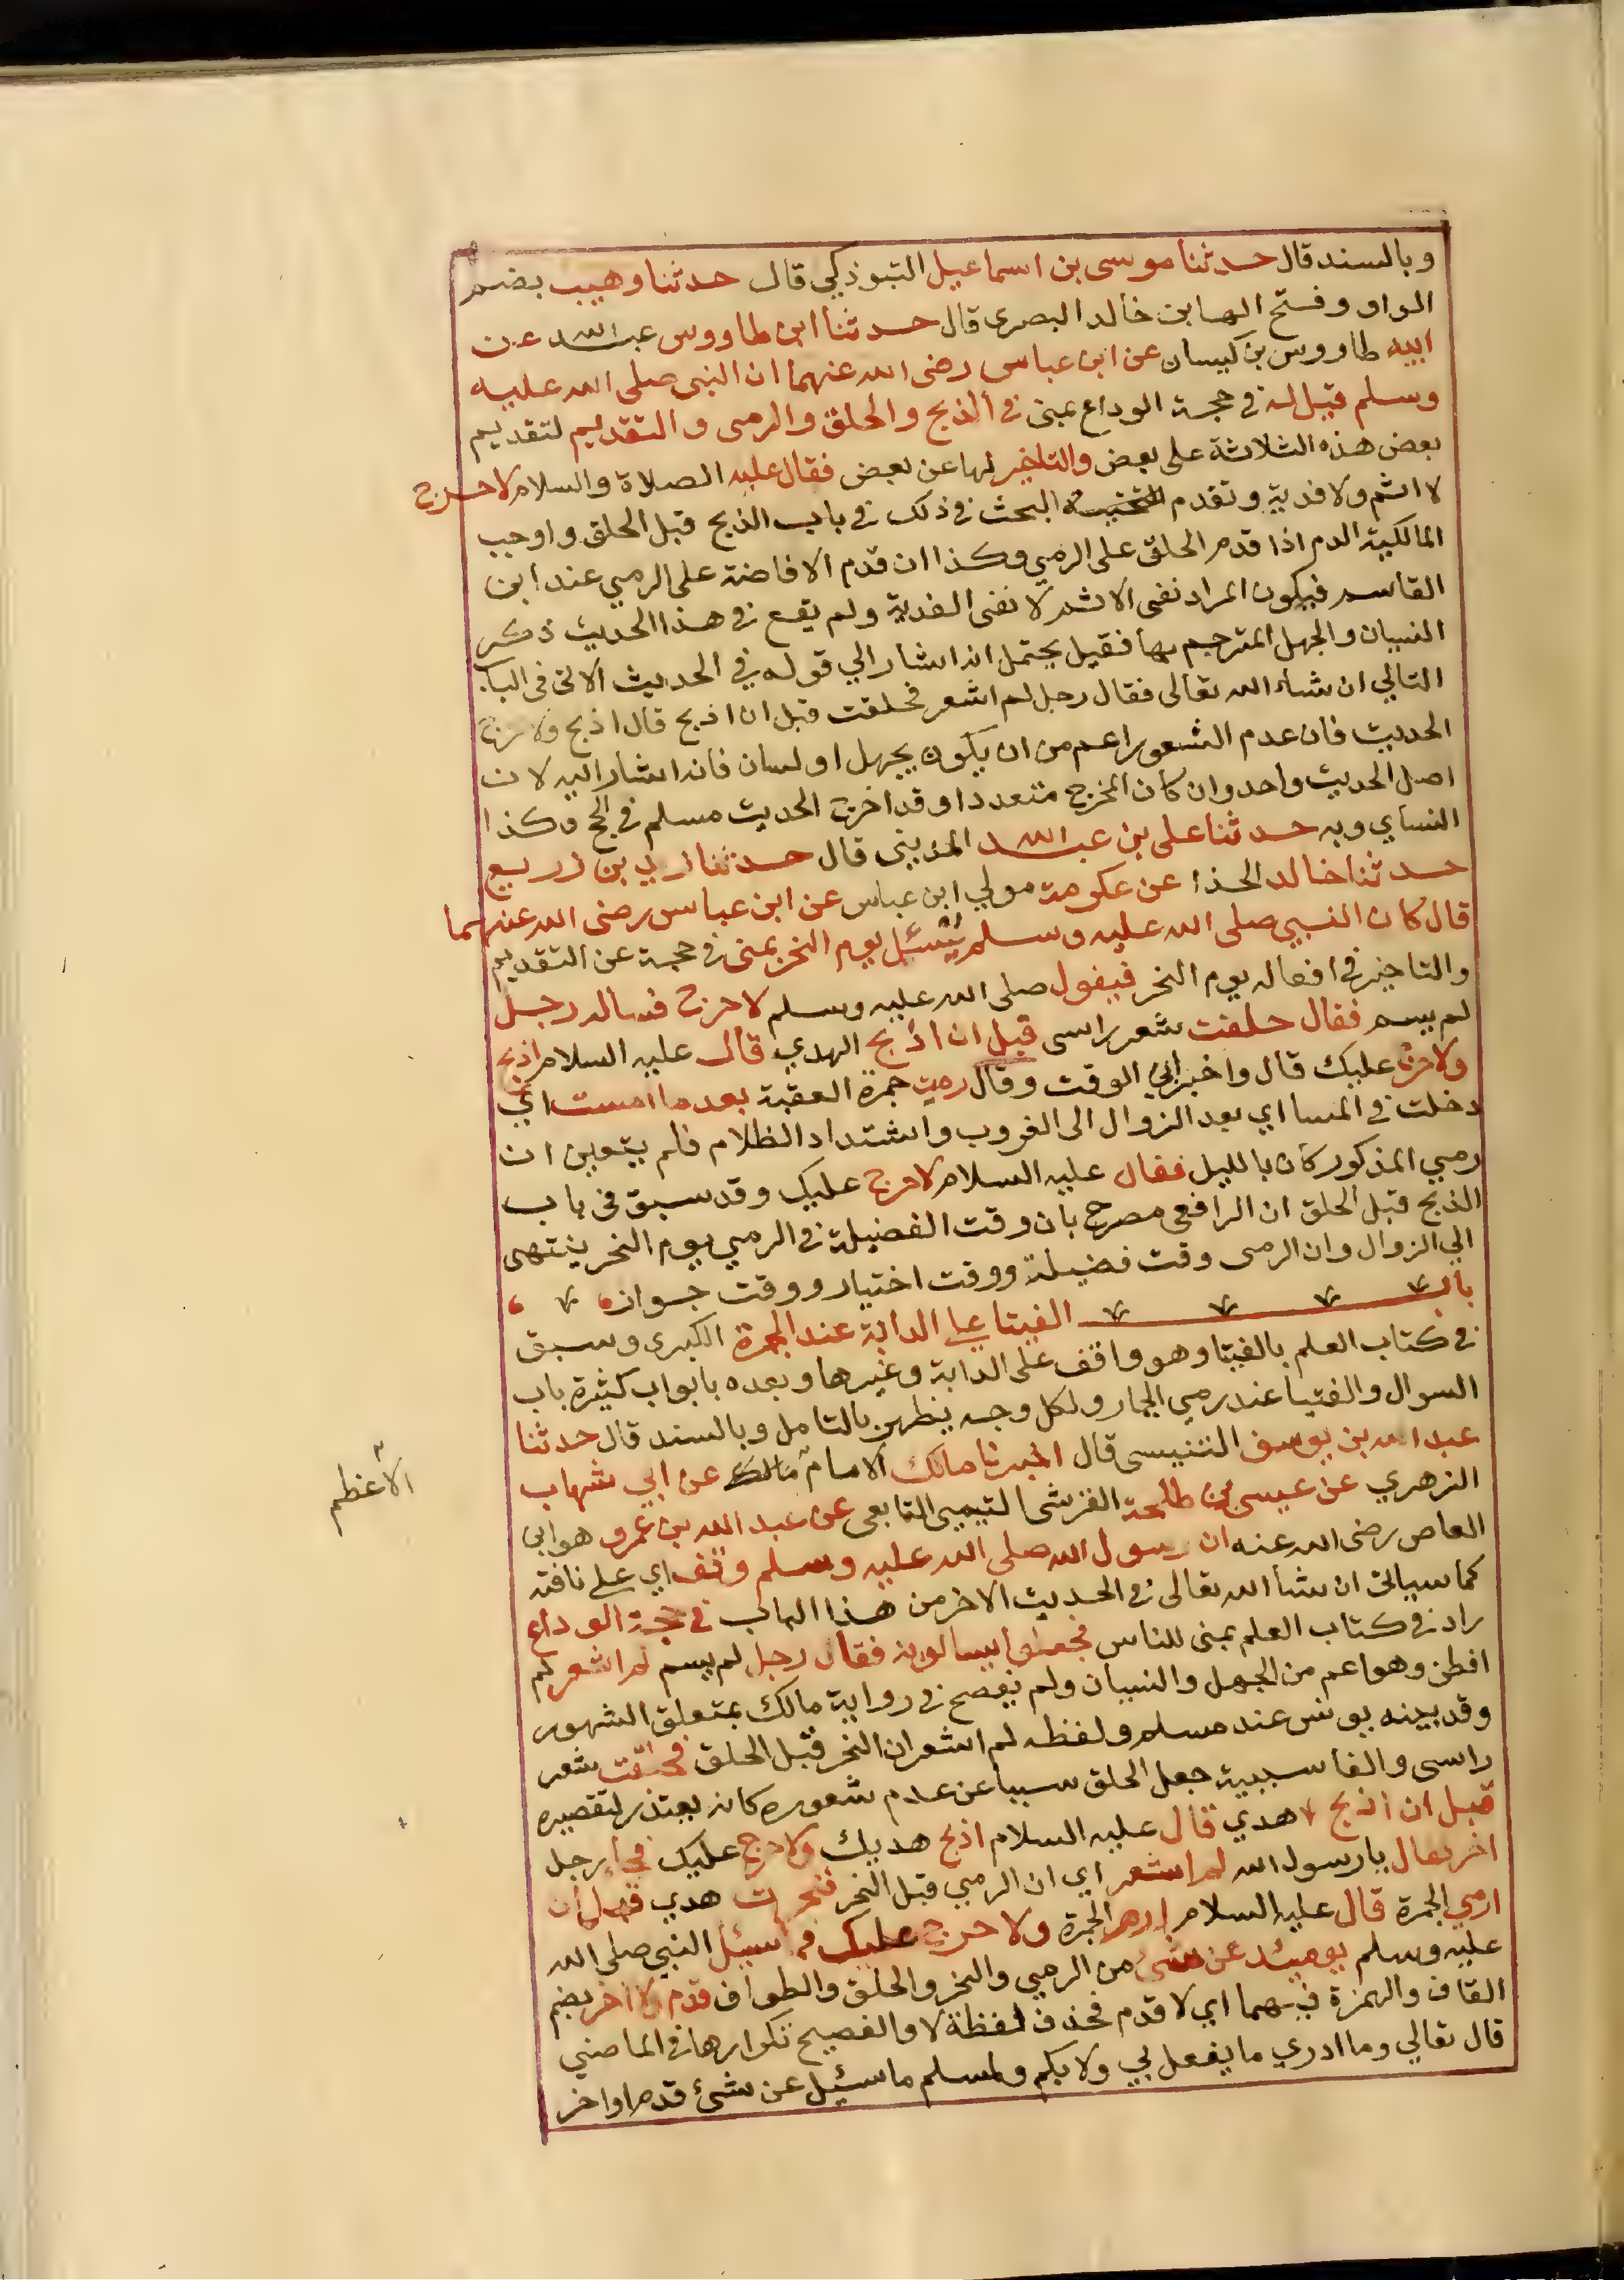 وبالسند قال حدثنا موسى بن اسماعيل التبوذكي قال حدثنا وهيب بضم
الواو وفتح الها بن خالد البصرى قال حدثنا ابن طاووس عبد الله عن
ابيه طاووس بن كيسان عن ابن عباس رضى الله عنهما ان النبى صلى الله عليه
وسلم قيل له في حجة الوداع بمنى في الذبح والحلق والرمى والتقديم لتقديم
بعض هذه الثلاثة على بعض والتاخير لها عن بعض فقال عليه الصلاة والسلام لا حرج
لا اثم ولا فدية وتقدم البحث في ذلك في باب الذبح قبل الحلق واوجب
المالكية الدم اذا قدم الحلق على الرمي وكذا ان قدم الافاضة على الرمي عند ابن
القاسم فيكون المراد نفى الاثم لا نفى الفدية ولم يقع في هذا الحديث ذكر
النسيان والجهل المترجم بها فقيل يحتمل انه اشار الي قوله في الحديث الاتى فى الباب
التالي ان شاء الله تعالى فقال رجل لم اشعر فحلقت قبل ان اذبح قال اذبح ولا حرج
الحديث فان عدم الشعور اعم من ان يكون بجهل او نسيان فانه اشار اليه لان
اصل الحديث واحد وان كان المخرج متعددا وقد اخرج الحديث مسلم في الحج وكذا
النساي وبه حدثنا على بن عبد الله المديني قال حدثنا يزيد بن زريع
حدثنا خالد الحذا عن عكرمة مولي ابن عباس عن ابن عباس رضى الله عنهما
قال كان النبي صلى الله عليه وسلم يُسئل يوم النحر بمنى في حجة عن التقديم
والتاخير في افعال يوم النحر فيقول صلى الله عليه وسلم لا حرج فساله رجل
لم يسم فقال حلقت شعر راسى قبل ان اذبح الهدي قال عليه السلام اذبح
ولا حرج عليك قال واخبر ابي الوقت وقال رميت جمرة العقبة بعد ما امست اي
دخلت في المسا اي بعد الزوال الى الغروب واشتداد الظلام فلم يتعين ان
رمي المذكور كان بالليل فقال عليه السلام لا حرج عليك وقد سبق فى باب
الذبح قبل الحلق ان الرافعى مصرح بان وقت الفضيلة في الرمي يوم النحر ينتهى
الي الزوال وان الرمى وقت فضيلة ووقت اختيار ووقت جواز
باب الفيتا على الدابة عند الجمرة الكبرى وسبق
في كتاب العلم بالفيتا وهو واقف على الدابة وغيرها وبعده بابواب كثيرة باب
السوال والفتيا عند رمي الجمار ولكل وجه يظهر بالتامل وبالسند قال حدثنا
عبد الله بن يوسف التنيسى قال اخبرنا مالك الامام مالك عن ابي شهاب
الزهري عن عيسى بن طلحة القرشى التيمي التابعى عن عبد الله بن عمرو هو ابن
العاص رضى الله عنه ان رسول الله صلى الله عليه وسلم وقف اي على ناقته
كما سياتى ان شا الله تعالى في الحديث الاخر من هذا الباب في حجة الوداع
زاد في كتاب العلم بمنى للناس فجعلوا يسالونه فقال رجل لم يسم لم اشعر لم
افطن وهو اعم من الجهل والنسيان ولم يفصح في رواية مالك بمتعلق الشعور
وقد بينه يونس عند مسلم ولفظه لم اشعر ان النحر قبل الحلق فحلقت شعر
راسى والفا سببية جعل الحلق سببا عن عدم شعوره كانه يعتذر لتقصيره
قبل ان اذبح هدي قال عليه السلام اذبح هديك ولا حرج عليك فجا رجل
اخر فقال يا رسول الله لم اشعر اي ان الرمي قبل النحر فنحرت هدي قبل ان
ارمي الجمرة قال عليه السلام ارم الجمرة ولا حرج عليك فما سئل النبي صلى الله
عليه وسلم يوميئد عن شئ من الرمي والنحر والحلق والطواف قدم ولا اخر بضم
القاف والهمزة فيهما اي لا قدم فحذف لفظة لا والفصيح تكرارها في الماضي
قال تعالي وما ادري ما يفعل بي ولا بكم ولمسلم ما سئيل عن شئ قدم او اخر
الأعظم